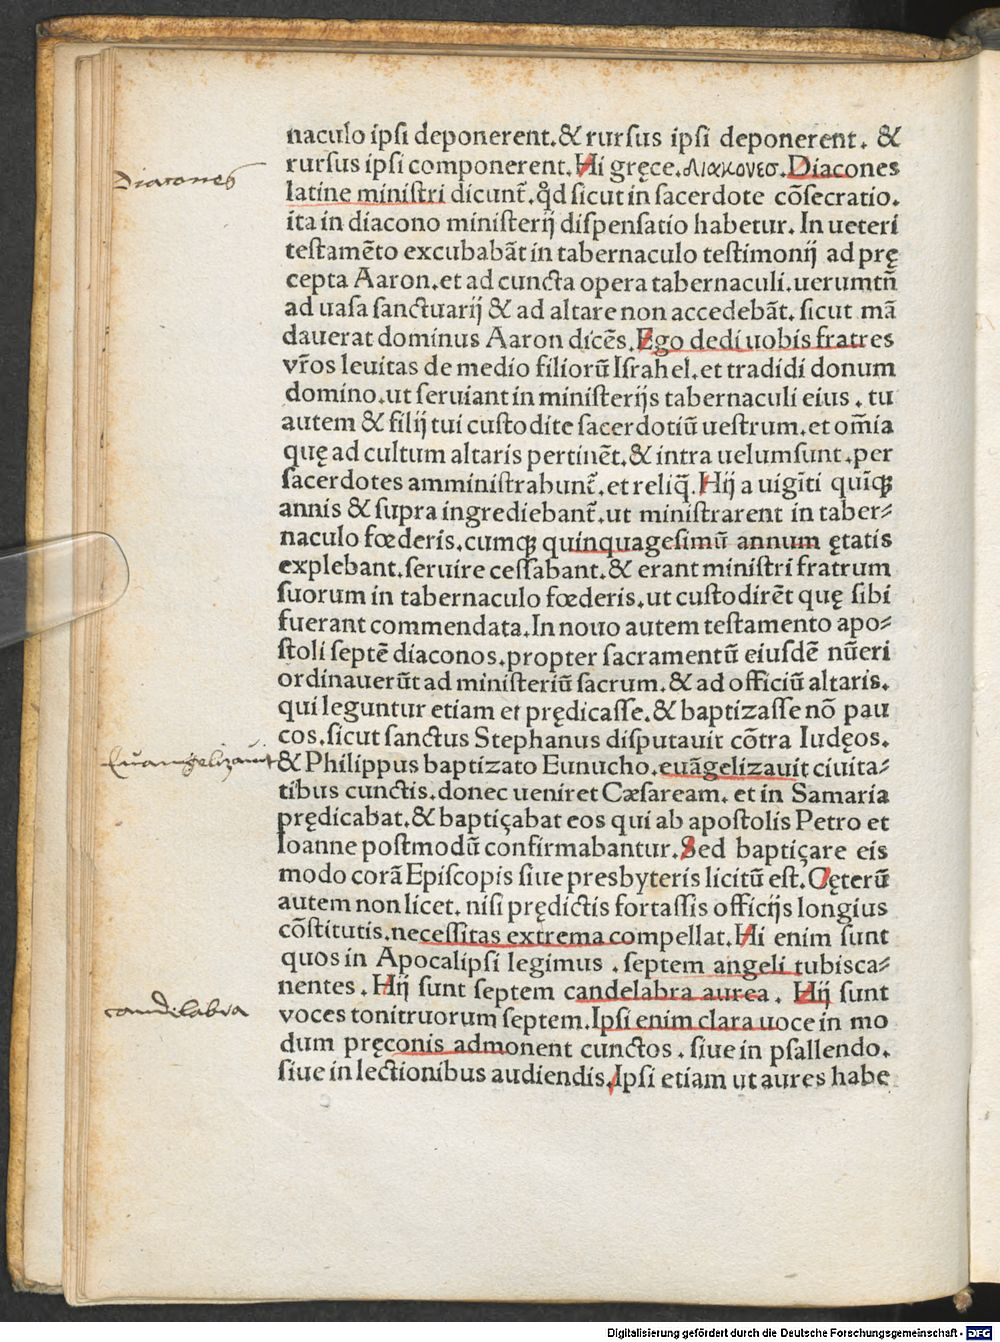 naculo ipſi deponerent. & rurſus ipſi deponerent. &
rurſus ipſi componerent. Hi gręce. ΔΙακονεσ. Diacones
Diacones
latine miniſtri dicunt̃. q̊d ſicut in ſacerdote cõſecratio.
ita in diacono miniſterij diſpenſatio habetur. In ueteri
teſtamẽto excubabãt in tabernaculo teſtimonij ad prę
cepta Aaron. et ad cuncta opera tabernaculi. uerumtñ
ad uaſa ſanctuarij & ad altare non accedebãt. ſicut mã
dauerat dominus Aaron dicẽs. Ego dedi uobis fratres
vr̃os leuitas de medio filiorũ Iſrahel. et tradidi donum
domino. ut ſeruiant in miniſterijs tabernaculi eius. tu
autem & filij tui cuſtodite ſacerdotiũ ueſtrum. et om̃ia
quę ad cultum altaris pertinẽt. & intra uelum ſunt. per
ſacerdotes amminiſtrabunt̃. et reliq̃. Hij a uigĩti quĩqꝫ
annis & ſupra ingrediebant̃. ut miniſtrarent in taber⸗
naculo fœderis. cumqꝫ quinquageſimũ annum ętatis
explebant. ſeruire ceſſabant. & erant miniſtri fratrum
ſuorum in tabernaculo fœderis. ut cuſtodirẽt quę ſibi
fuerant commendata. In nouo autem teſtamento apo⸗
ſtoli ſeptẽ diaconos. propter ſacramentũ eiuſdẽ nũeri
ordinauerũt ad miniſteriũ ſacrum. & ad officiũ altaris.
qui leguntur etiam et prędicaſſe. & baptizaſſe nõ pau
cos. ſicut ſanctus Stephanus diſputauit cõtra Iudęos.
Euangelizauit
& Philippus baptizato Eunucho. euãgelizauit ciuita⸗
tibus cunctis. donec ueniret Cæſaream. et in Samaria
prędicabat. & baptiçabat eos qui ab apoſtolis Petro et
Ioanne poſtmodũ confirmabantur. Sed baptiçare eis
modo corã Epiſcopis ſiue presbyteris licitũ eſt. Cęterũ
autem non licet. niſi prędictis fortaſſis officijs longius
cõſtitutis. neceſſitas extrema compellat. Hi enim ſunt
quos in Apocalipſi legimus. ſeptem angeli tubisca⸗
nentes. Hij ſunt ſeptem candelabra aurea. Hij ſunt
candelabra
voces tonitruorum ſeptem. Ipſi enim clara uoce in mo
dum pręconis admonent cunctos. ſiue in pſallendo.
ſiue in lectionibus audiendis. Ipſi etiam ut aures habe
Digitalisierung gefördert durch die Deutsche Forschungsgemeinschaft - DFG